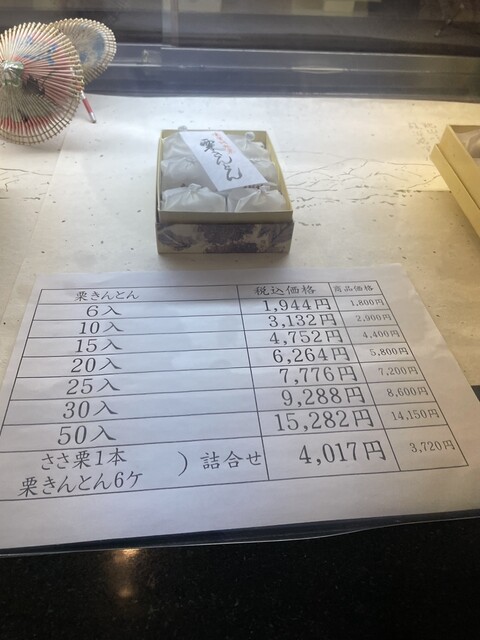 栗きんとん
栗きんとん 税込価格 商品価格
6入 1,944円 1,800円
10入 3,132円 2,900円
15入 4,752円 4,400円
20入 6,264円 5,800円
25入 7,776円 7,200円
30入 9,288円 8,600円
50入 15,282円 14,150円
ささ栗1本 )詰合せ 4,017円 3,720円
栗きんとん6ケ